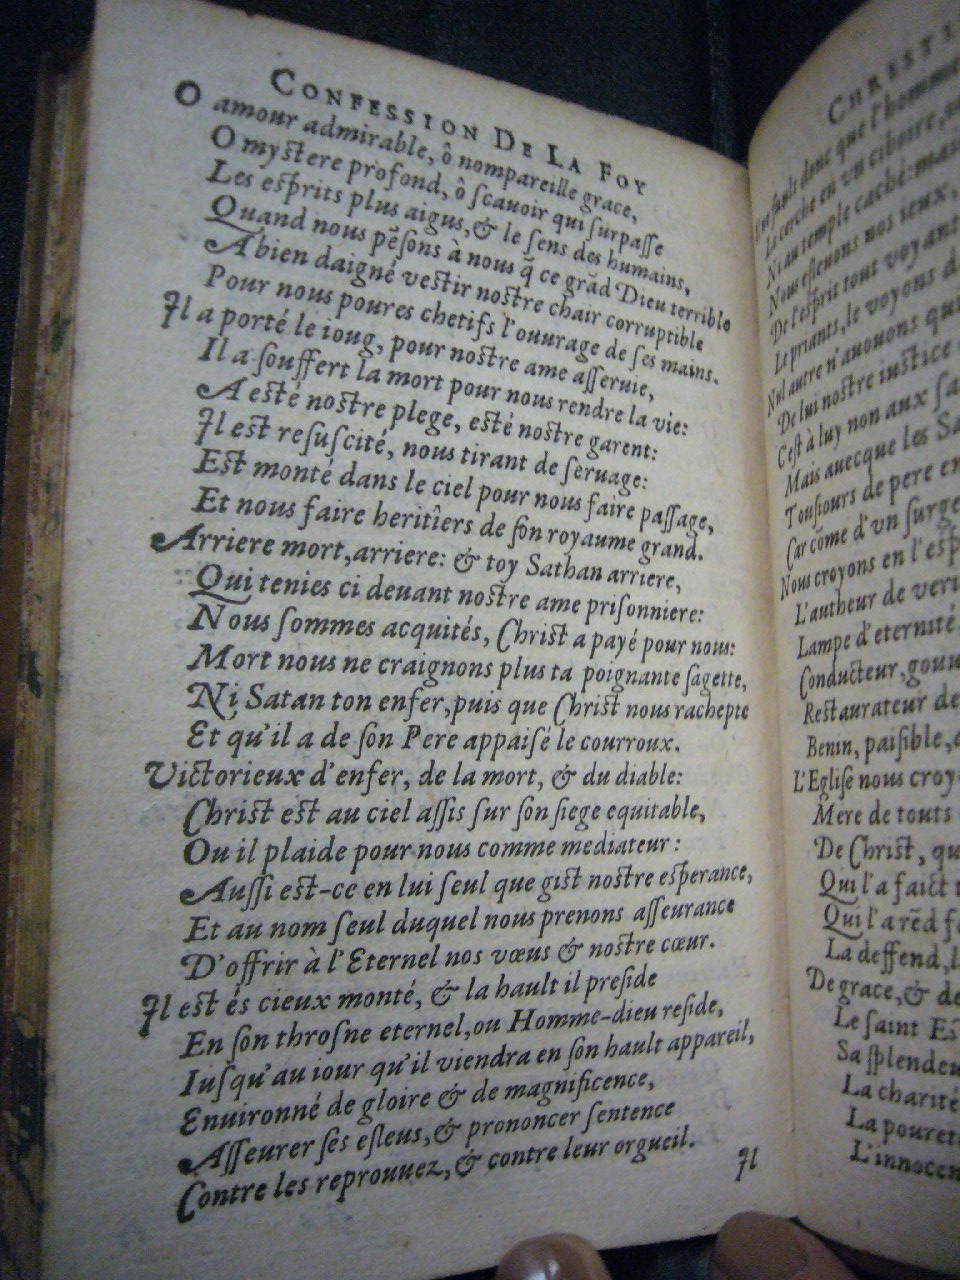 CONFESSION DE LA FOY
O amour admirable, ô nompareille grace,
O mystere profond, ô sçauoir qui surpasse
Les esprits plus aigus, & le sens des humains,
Quand nous pẽsons à nous q̃ ce grãd Dieu terrible
A bien daigné vestir nostre chair corruptible
Pour nous poures chetifs l'ouurage de ses mains.
Il a porté le ioug, pour nostre ame asseruie,
Il a souffert la mort pour nous rendre la vie:
A esté nostre plege, esté nostre garent:
Il est resuscité, nous tirant de seruage:
Est monté dans le ciel pour nous faire passage,
Et nous faire heritiers de son royaume grand.
Arriere mort, arriere: & toy Sathan arriere,
Qui tenies ci deuant nostre ame prisonniere:
Nous sommes acquités, Christ a payé pour nous:
Mort nous ne craignons plus ta poignante sagette,
Ni Satan ton enfer, puis que Christ nous rachepte
Et qu'il a de son Pere appaisé le courroux.
Victorieux d'enfer, de la mort, & du diable:
Christ est au ciel assis sur son siege equitable,
Ou il plaide pour nous comme mediateur:
Aussi est-ce en lui seul que gist nostre esperance,
Et au nom seul duquel nous prenons asseurance
D'offrir à l'Eternel nos vœus & nostre cœur.
Il est és cieux monté, & la hault il preside
En son throsne eternel, ou Homme-dieu reside,
Iusqu'au iour qu'il viendra en son hault appareil,
Enuironné de gloire & de magnificence,
Asseurer ses esleus, & prononcer sentence
Contre les reprouuez, & contre leur orgueil.
Il
donc que l'homme
La cerche en vn ciboire,
Ni au temple caché:
Nous esleuons nos ieux,
De l'esprit tout voyant
Le priants, le voyons
Nul autre n'auouons
De lui nostre iustice
C'est à luy non aux
Mais auecque les
Tousiours de pere en
Car cõme d'vn
Nous croyons en l'esp
L'autheur de veri
Lampe d'eternité
Conducteur, gouu
Restaurateur de
Benin, paisible,
L'Eglise nous croy
Mere de touts
De Christ, qu
Qui l'a faict
Qui l'a rẽd
La deffend,
De grace, & de
Le saint Es
Sa splendeu
La charité
La pouret
L'innocen